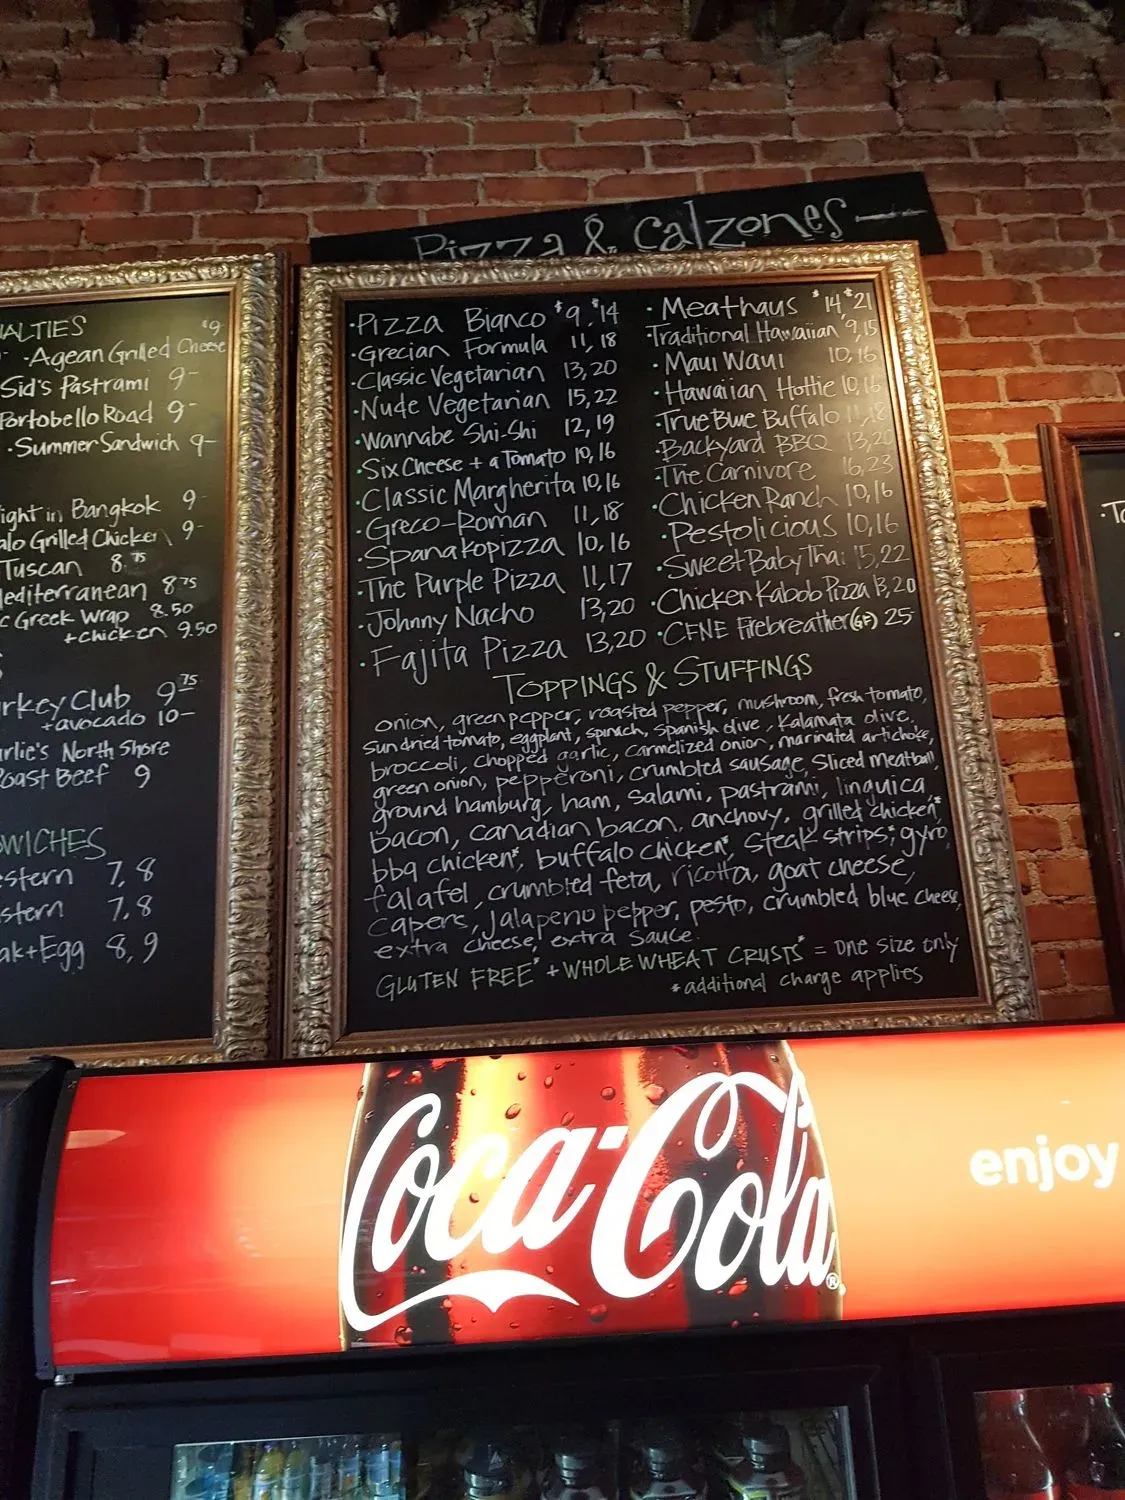 Pizza & Calzones
ALTIES
$9
Agean Grilled Cheese
Sid's Pastrami 9-
Portobello Road 9-
Summer Sandwich 9-
ight in Bangkok 9-
alo Grilled Chicken 9-
Tuscan 8.75
editerranean 8.75
c Greek Wrap 8.50
+chicken 9.50
rkey Club 9.75
+avocado 10-
arlie's North Shore
Roast Beef 9
DWICHES
estern 7, 8
stern 7, 8
ak+Egg 8, 9
·Pizza Bianco $9, $14
·Grecian Formula 11, 18
·Classic Vegetarian 13, 20
·Nude Vegetarian 15, 22
·Wannabe Shi-Shi 12, 19
·Six Cheese + a Tomato 10, 16
·Classic Margherita 10, 16
·Greco-Roman 11, 18
·Spanakopizza 10, 16
·The Purple Pizza 11, 17
·Johnny Nacho 13, 20
·Fajita Pizza 13, 20
·Meathaus $14, $21
Traditional Hawaiian 9, 15
·Maui Waui 10, 16
·Hawaiian Hottie 10, 16
·True Blue Buffalo 11, 18
·Backyard BBQ 13, 20
·The Carnivore 16, 23
·Chicken Ranch 10, 16
·Pestolicious 10, 16
·Sweet Baby Thai 15, 22
·Chicken Kabob Pizza 13, 20
·CFNE Firebreather (GF) 25-
TOPPINGS & STUFFINGS
onion, green pepper, roasted pepper, mushroom, fresh tomato,
sun dried tomato, eggplant, spinach, spanish olive, kalamata olive,
broccoli, chopped garlic, carmelized onion, marinated artichoke,
green onion, pepperoni, crumbled sausage, sliced meatball,
ground hamburg, ham, salami, pastrami, linguica,
bacon, canadian bacon, anchovy, grilled chicken*,
bbq chicken*, buffalo chicken*, steak strips*, gyro,
falafel, crumbled feta, ricotta, goat cheese,
capers, jalapeno pepper, pesto, crumbled blue cheese,
extra cheese, extra sauce.
GLUTEN FREE* + WHOLE WHEAT CRUSTS* = one size only
*additional charge applies
Coca-Cola®
enjoy